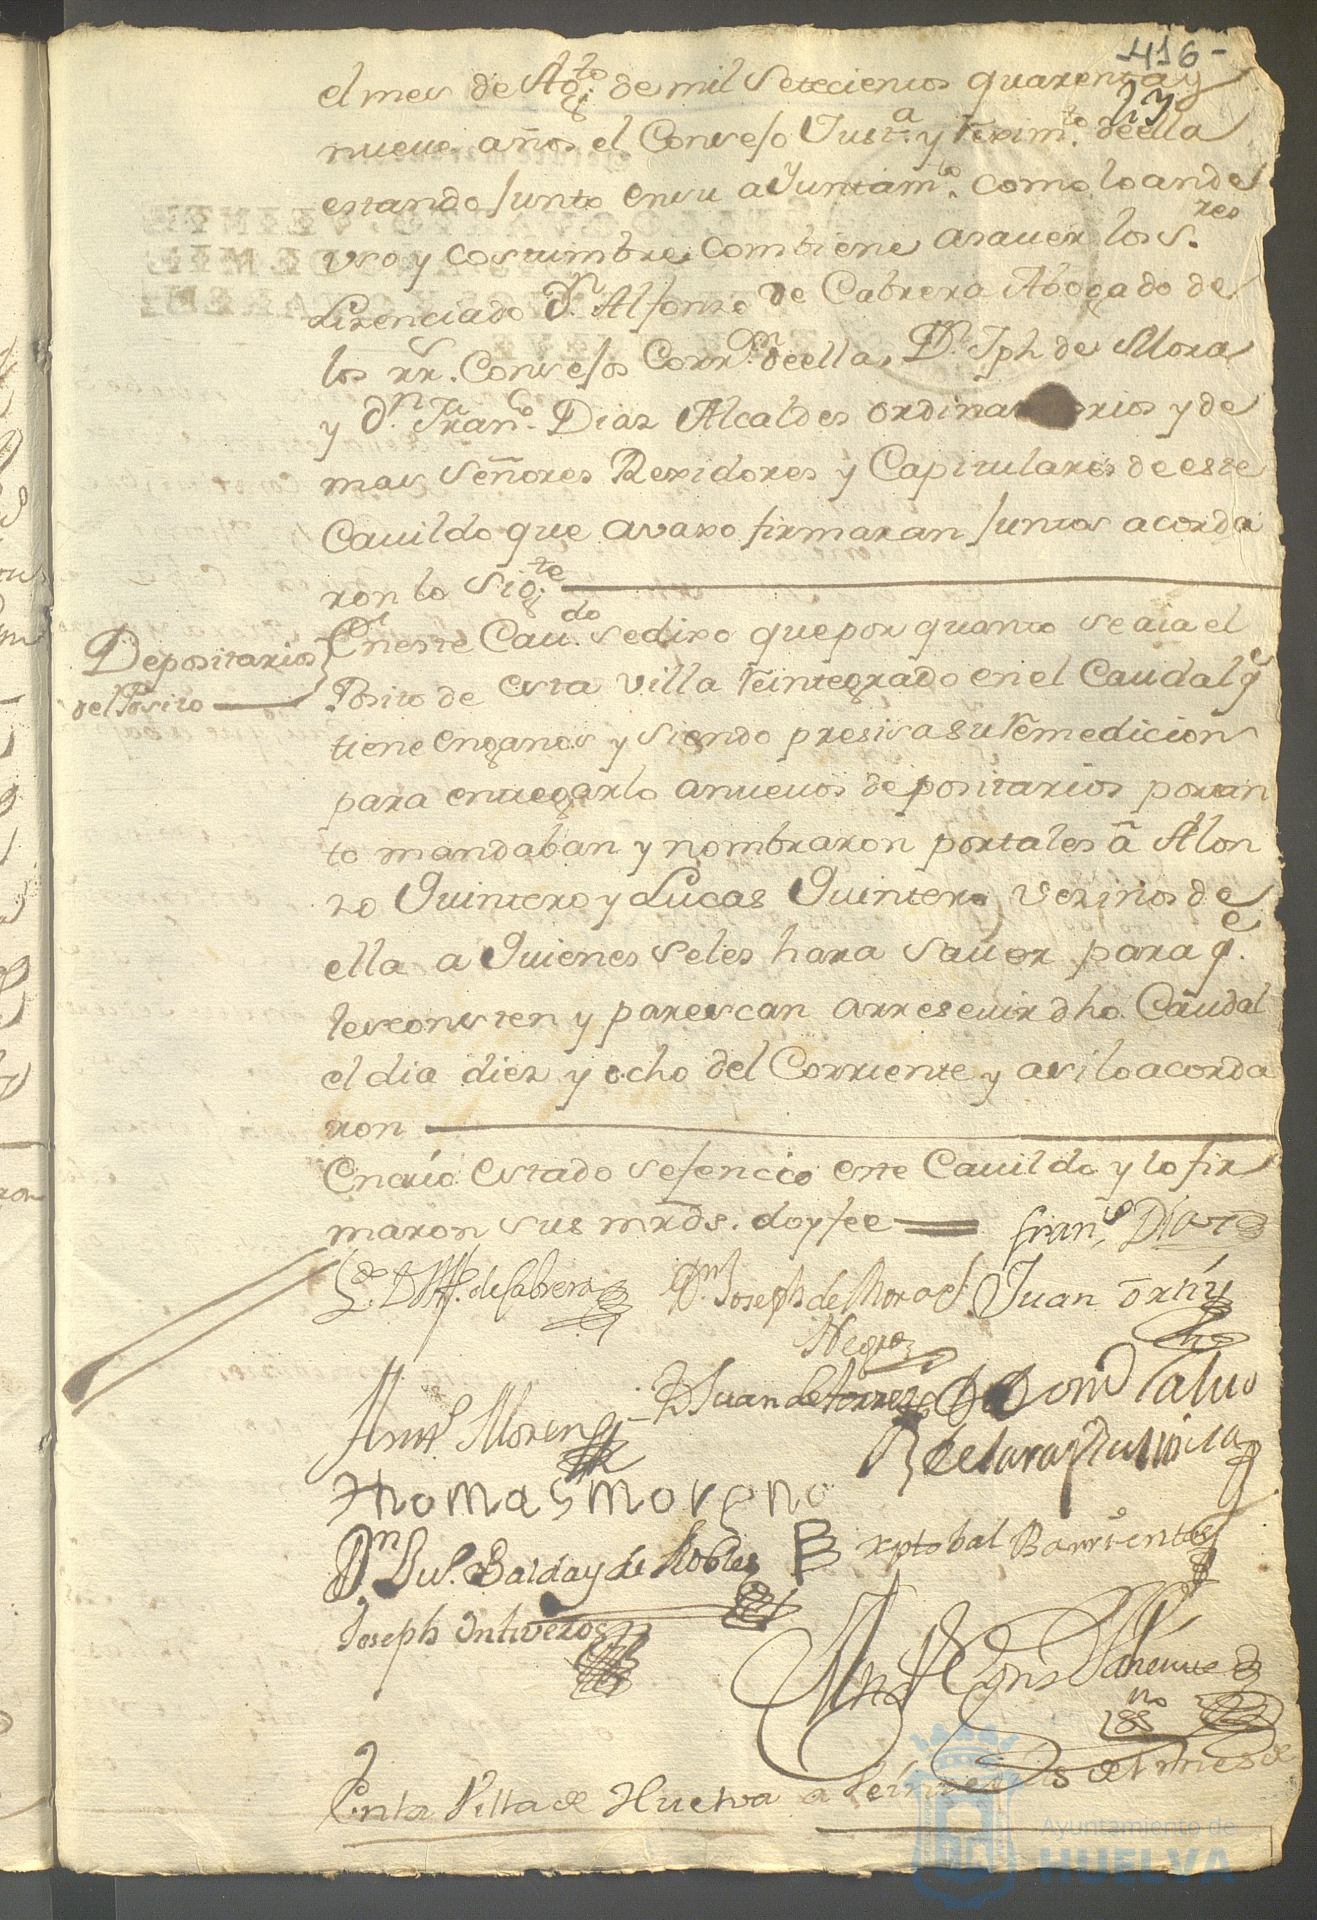 416-
47
el mes de Agto. de mil Setecientos quarenta y
nueve años el Consejo Justa. y Reximto. de ella
estando Junto en su ayuntamto. como lo an de
uso y costumbre combiene asauer los Sres.
Lizenciado Dn. Alfonso de Cabrera Abogado de
los rr. Consejos Corrxor. de ella, Dn. Jph de Mora
y Dn. Franco. Dias Alcaldes ordinarios y de
mas Señores Rexidores y Capitulares de este
Cauildo que avaxo firmaran Juntos acorda
ron lo Sigte.
Depositarios
del Posito
En este Caudo. se dixo que por quanto se aia el
Posito de esta villa Reintegrado en el Caudal qe.
tiene en ganos y siendo presisa su Remedicion
para entregarlo a nueuos depositarios por tan
to mandaban y nombraron por tales â Alon
zo Quintero y Lucas Quintero vezinos de
ella a Quienes se les hara sauer para qe.
les consten y parescan a rreseuir dho. Caudal
el dia diez y ocho del Corriente y asi lo acorda
ron
En cuio Estado se fencio este Cauildo y lo fir
maron sus mrds. doy fee
Franco. Diaz
Ldo. D. Alfo. de Cabrera
Dn. Joseph de Mora
Negro
Juan Ortiz
Anto. Moreno
D Juan de Torres
Thomas Moreno
Dn. Balday de Robles
xptobal Barrientos
Joseph Ontiveros
En la Villa de Huelva a del mes de
Ayuntamiento de
HUELVA